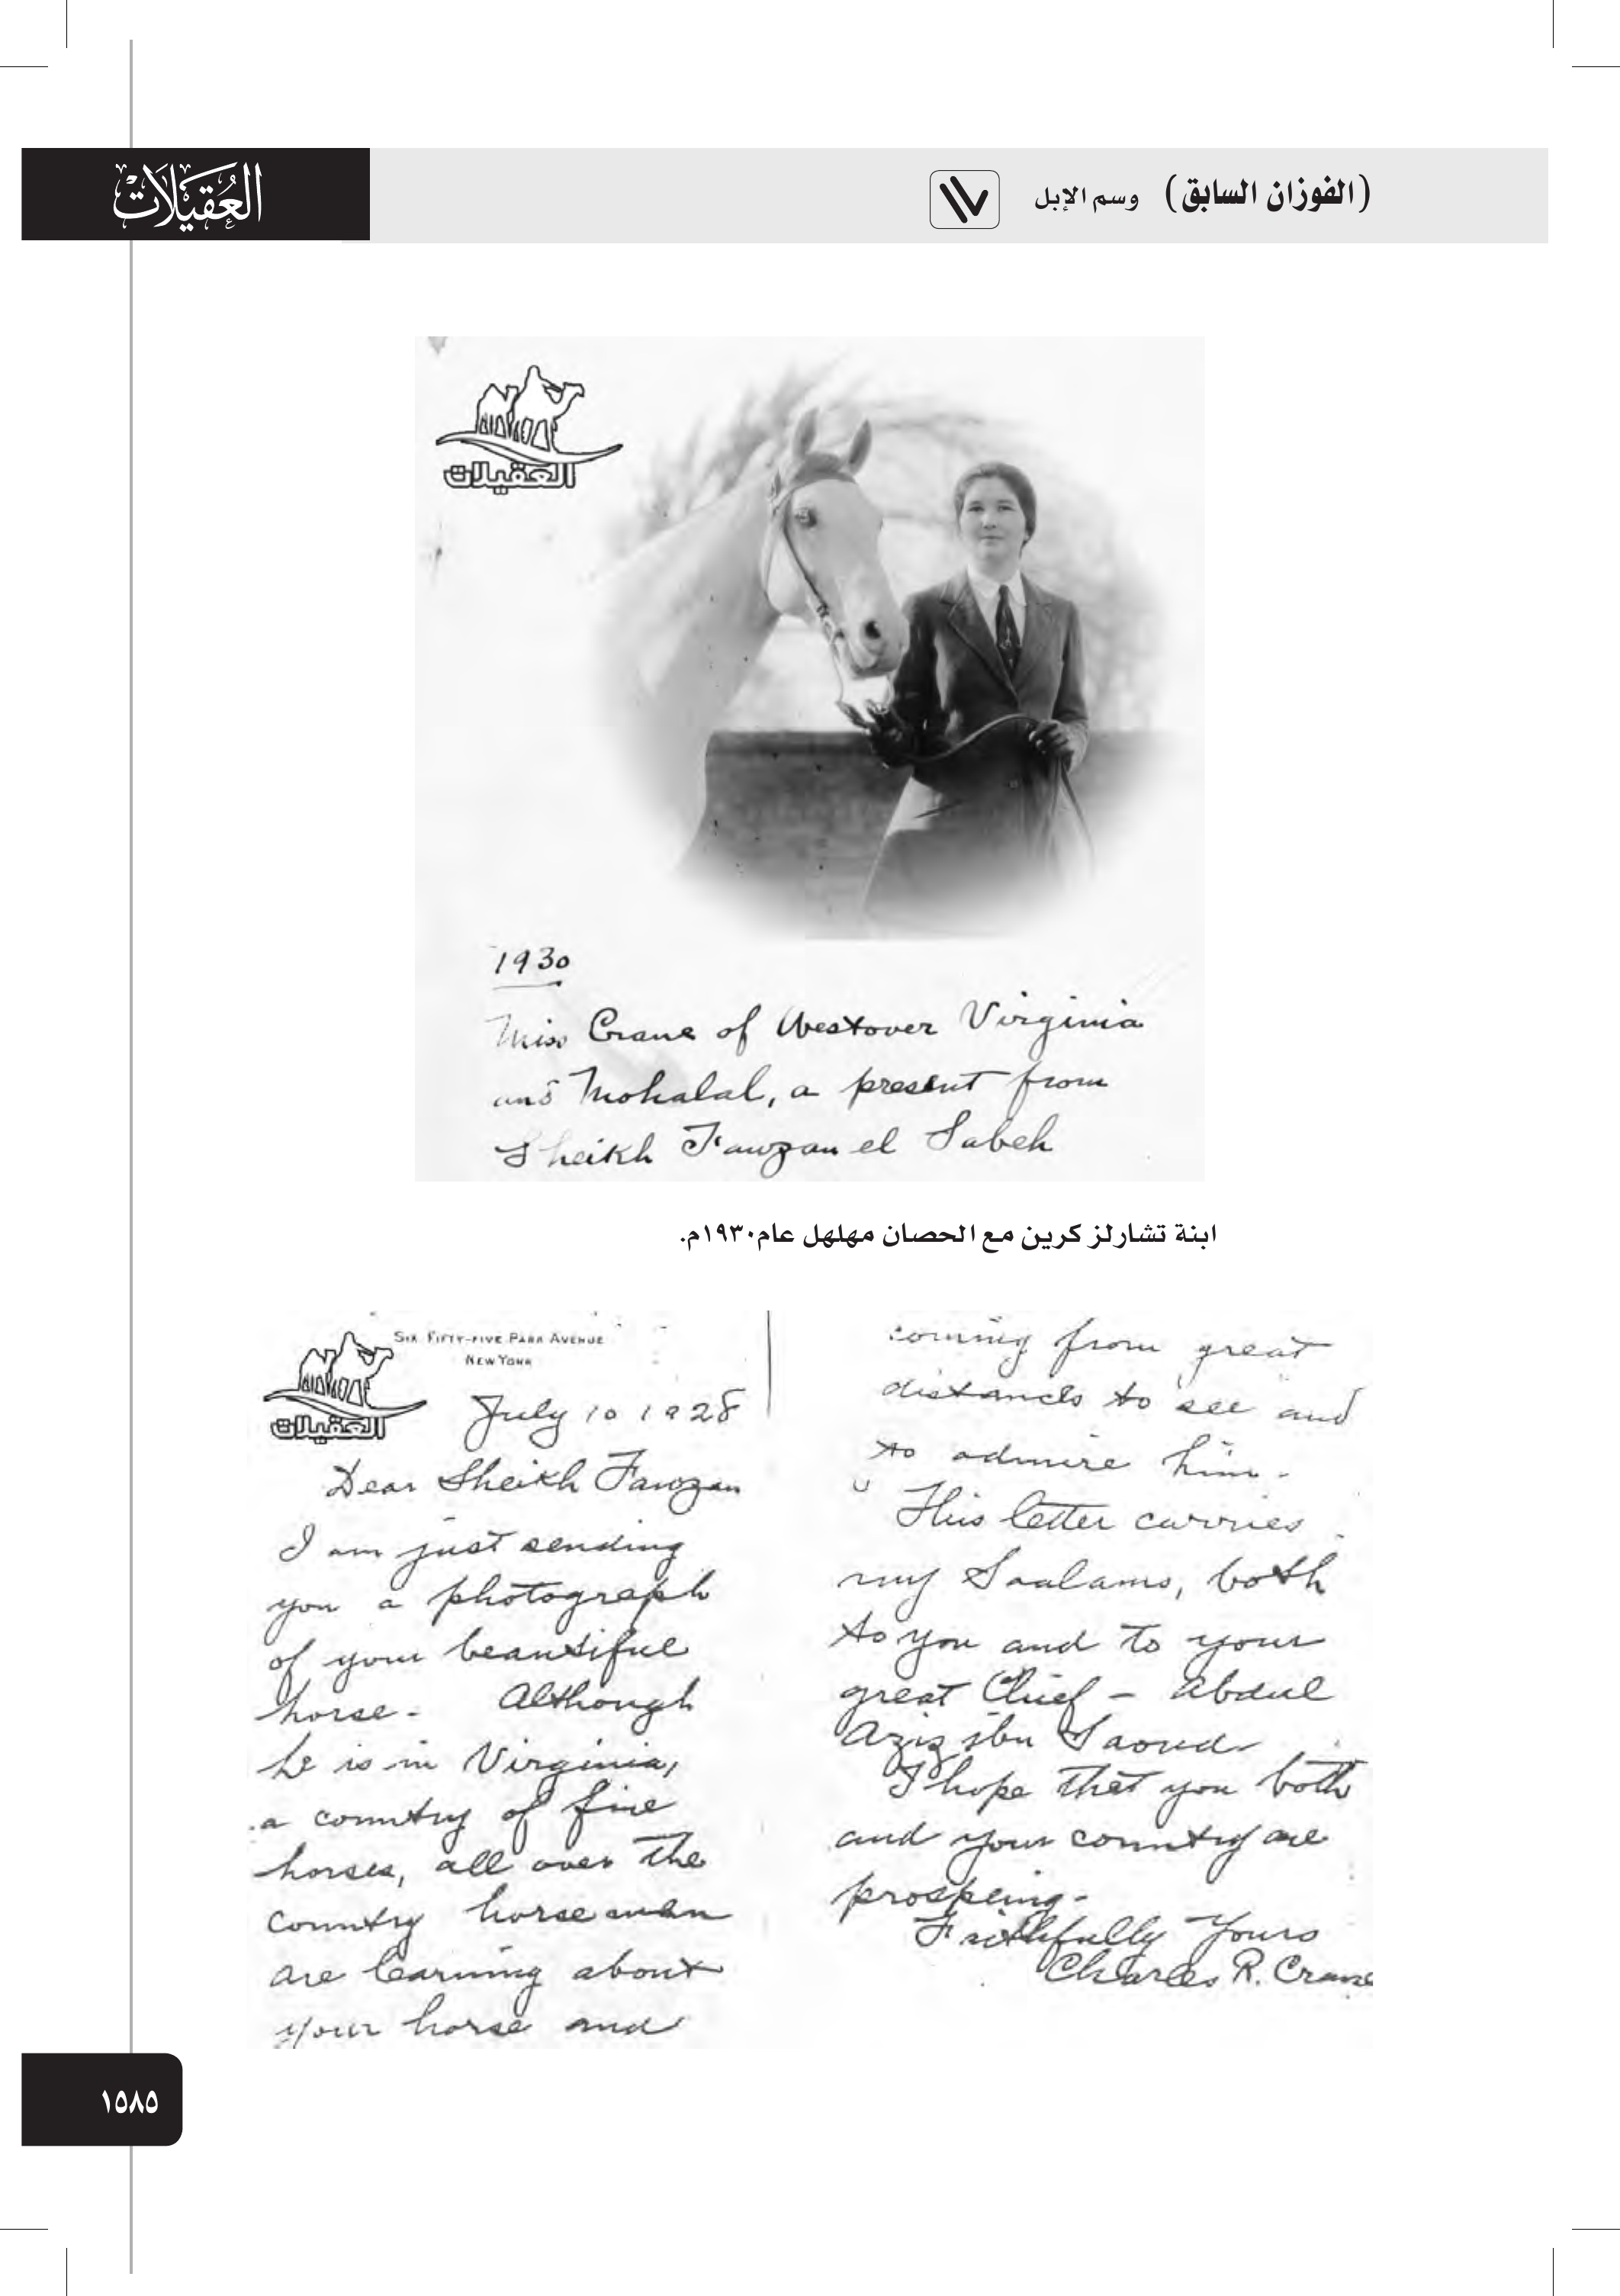 العقيلات
(الفوزان السابق) وسم الإبل
العقيلات
1930
Miss Crane of Westover Virginia
and Mohalal, a present from
Sheikh Fauzan el Sabeh
ابنة تشارلز كرين مع الحصان مهلهل عام١٩٣٠م.
SIX FIFTY-FIVE PARK AVENUE
NEW YORK
العقيلات
July 10 1928
Dear Sheikh Fauzan
I am just sending
you a photograph
of your beautiful
horse. Although
he is in Virginia,
a country of fine
horses, all over the
country horsemen
are learning about
your horse and
coming from great
distances to see and
to admire him.
This letter carries
my Saalams, both
to you and to your
great Chief - Abdul
Aziz ibn Saoud
I hope that you both
and your country are
prospeing.
Faithfully Yours
Charles R. Crane
١٥٨٥